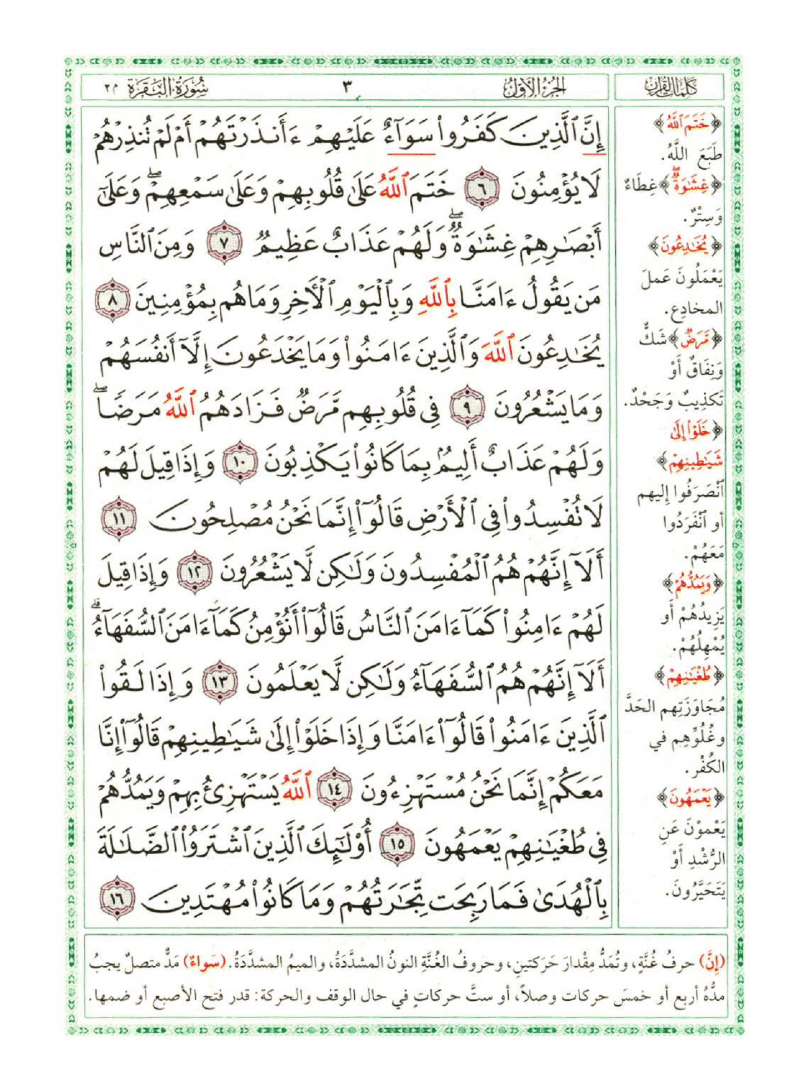 كلمات القرآن
الجزء الأول
٣
سورة البقرة ٢م
إِنَّ ٱلَّذِينَ كَفَرُوا۟ سَوَآءٌ عَلَيْهِمْ ءَأَنذَرْتَهُمْ أَمْ لَمْ تُنذِرْهُمْ
لَا يُؤْمِنُونَ ٦ خَتَمَ ٱللَّهُ عَلَىٰ قُلُوبِهِمْ وَعَلَىٰ سَمْعِهِمْ ۖ وَعَلَىٰٓ
أَبْصَـٰرِهِمْ غِشَـٰوَةٌ ۖ وَلَهُمْ عَذَابٌ عَظِيمٌ ٧ وَمِنَ ٱلنَّاسِ
مَن يَقُولُ ءَامَنَّا بِٱللَّهِ وَبِٱلْيَوْمِ ٱلْـَٔاخِرِ وَمَا هُم بِمُؤْمِنِينَ ٨
يُخَـٰدِعُونَ ٱللَّهَ وَٱلَّذِينَ ءَامَنُوا۟ وَمَا يَخْدَعُونَ إِلَّآ أَنفُسَهُمْ
وَمَا يَشْعُرُونَ ٩ فِى قُلُوبِهِم مَّرَضٌ فَزَادَهُمُ ٱللَّهُ مَرَضًا ۖ
وَلَهُمْ عَذَابٌ أَلِيمٌۢ بِمَا كَانُوا۟ يَكْذِبُونَ ١٠ وَإِذَا قِيلَ لَهُمْ
لَا تُفْسِدُوا۟ فِى ٱلْأَرْضِ قَالُوٓا۟ إِنَّمَا نَحْنُ مُصْلِحُونَ ١١
أَلَآ إِنَّهُمْ هُمُ ٱلْمُفْسِدُونَ وَلَـٰكِن لَّا يَشْعُرُونَ ١٢ وَإِذَا قِيلَ
لَهُمْ ءَامِنُوا۟ كَمَآ ءَامَنَ ٱلنَّاسُ قَالُوٓا۟ أَنُؤْمِنُ كَمَآ ءَامَنَ ٱلسُّفَهَآءُ ۗ
أَلَآ إِنَّهُمْ هُمُ ٱلسُّفَهَآءُ وَلَـٰكِن لَّا يَعْلَمُونَ ١٣ وَإِذَا لَقُوا۟
ٱلَّذِينَ ءَامَنُوا۟ قَالُوٓا۟ ءَامَنَّا وَإِذَا خَلَوْا۟ إِلَىٰ شَيَـٰطِينِهِمْ قَالُوٓا۟ إِنَّا
مَعَكُمْ إِنَّمَا نَحْنُ مُسْتَهْزِءُونَ ١٤ ٱللَّهُ يَسْتَهْزِئُ بِهِمْ وَيَمُدُّهُمْ
فِى طُغْيَـٰنِهِمْ يَعْمَهُونَ ١٥ أُو۟لَـٰٓئِكَ ٱلَّذِينَ ٱشْتَرَوُا۟ ٱلضَّلَـٰلَةَ
بِٱلْهُدَىٰ فَمَا رَبِحَت تِّجَـٰرَتُهُمْ وَمَا كَانُوا۟ مُهْتَدِينَ ١٦
﴿خَتَمَ ٱللَّهُ﴾
طَبَعَ اللَّهُ.
﴿غِشَـٰوَةٌ﴾ غِطَاءٌ
وَسِتْرٌ.
﴿يُخَـٰدِعُونَ﴾
يَعْمَلُونَ عَملَ
المخادِعِ.
﴿مَّرَضٌ﴾ شَكٌّ
وَنِفَاقٌ أَوْ
تَكذِيبٌ وَجَحْدٌ.
﴿خَلَوْا۟ إِلَىٰ
شَيَـٰطِينِهِمْ﴾
ٱنْصَرَفُوا إليهم
أو ٱنْفَرَدُوا
مَعَهُمْ.
﴿وَيَمُدُّهُمْ﴾
يَزِيدُهُمْ أَو
يُمْهِلُهُمْ.
﴿طُغْيَـٰنِهِمْ﴾
مُجَاوَزَتِهِم الحَدَّ
وغُلُوِّهِم في
الكُفْرِ.
﴿يَعْمَهُونَ﴾
يَعْموْنَ عَنِ
الرُّشْدِ أَوْ
يَتَحَيَّرُونَ.
(إنَّ) حرفُ غُنَّةٍ، وتُمَدُّ مِقْدارَ حَرَكتينِ، وحروفُ الغُنَّةِ النونُ المشدَّدَةُ، والميمُ المشدَّدَةُ. (سَواءٌ) مَدٌّ متصلٌ يجبُ
مدُّهُ أربع أو خمسَ حركات وصلاً، أو ستَّ حركاتٍ في حال الوقف والحركة: قدر فتح الأصبع أو ضمها.